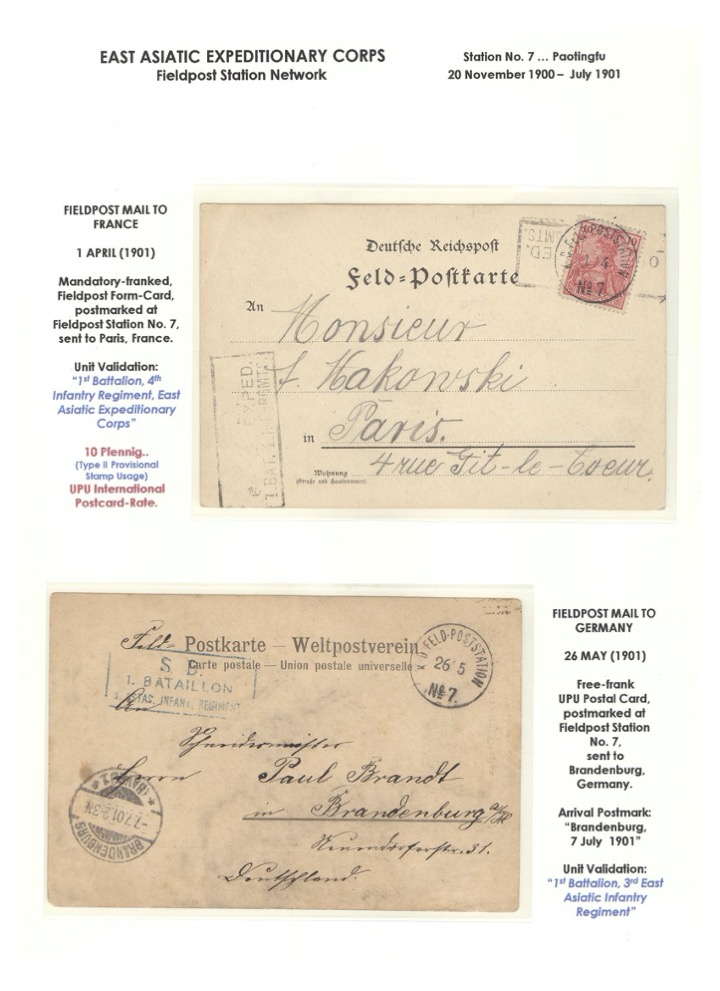 EAST ASIATIC EXPEDITIONARY CORPS
Fieldpost Station Network
Station No. 7 … Paotingfu
20 November 1900 – July 1901
FIELDPOST MAIL TO
FRANCE
1 APRIL (1901)
Mandatory-franked,
Fieldpost Form-Card,
postmarked at
Fieldpost Station No. 7,
sent to Paris, France.
Unit Validation:
"1st Battalion, 4th
Infantry Regiment, East
Asiatic Expeditionary
Corps"
10 Pfennig..
(Type II Provisional
Stamp Usage)
UPU International
Postcard-Rate.
Deutsche Reichspost
Feld-Postkarte
An
Monsieur
Makowski
in Paris.
Wohnung
(Straße und Hausnummer)
4 rue Git-le-Coeur.
K.D. FELD-POSTSTATION
1/4
No 7.
EXPED.
1. BAT. 4.
FIELDPOST MAIL TO
GERMANY
26 MAY (1901)
Free-frank
UPU Postal Card,
postmarked at
Fieldpost Station
No. 7,
sent to
Brandenburg,
Germany.
Arrival Postmark:
"Brandenburg,
7 July 1901"
Unit Validation:
"1st Battalion, 3rd East
Asiatic Infantry
Regiment"
Feld- Postkarte — Weltpostverein
Carte postale — Union postale universelle
S. B.
1. BATAILLON
OSTAS. INFANT. REGIMENT
An
K.D. FELD-POSTSTATION
26/5
No 7.
Schneidermeister
Herrn Paul Brandt
in Brandenburg a/H
Neuendorferstr. 31.
Deutschland.
BRANDENBURG
7.7.01.2-3N